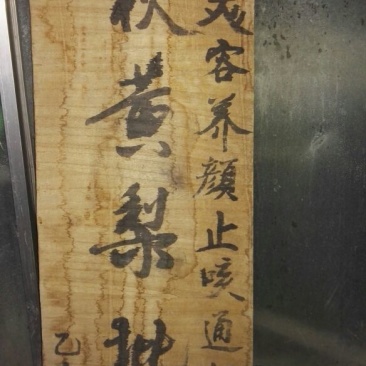 美容养顔止咳通
秋黄梨
乙